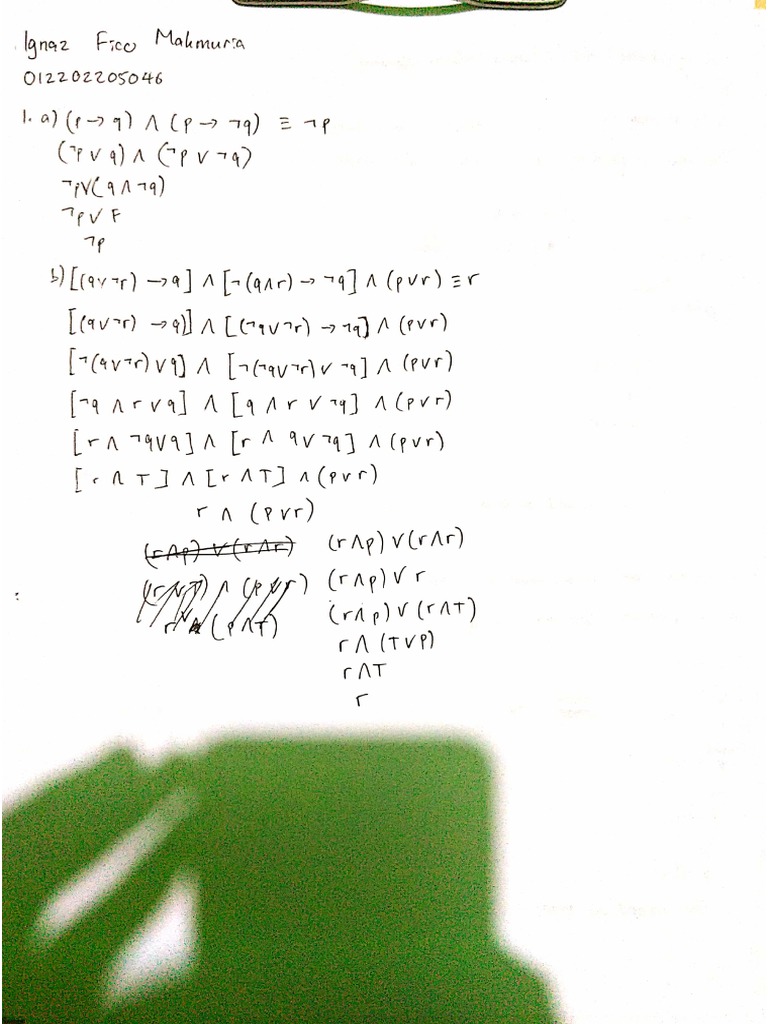 Ignaz Fico Makmuria
012202205046
1. a) (p → q) ∧ (p → ¬q) ≡ ¬p
(¬p ∨ q) ∧ (¬p ∨ ¬q)
¬p∨(q ∧ ¬q)
¬p ∨ F
¬p
b) [(q∨¬r) → q] ∧ [¬(q∧r) → ¬q] ∧ (p∨r) ≡ r
[(q∨¬r) → q)] ∧ [(¬q∨¬r) → ¬q] ∧ (p∨r)
[¬(q∨¬r)∨q] ∧ [¬(¬q∨¬r)∨ ¬q] ∧ (p∨r)
[¬q ∧ r ∨q] ∧ [q ∧ r ∨ ¬q] ∧ (p∨r)
[r ∧ ¬q∨q] ∧ [r ∧ q∨ ¬q] ∧ (p∨r)
[r ∧ T] ∧ [r ∧T] ∧ (p∨r)
r ∧ (p∨r)
(r∧p) ∨ (r∧r) (r∧p) ∨ (r∧r)
(r∧p) ∨ r
(p∧T) (r∧p) ∨ (r∧T)
r∧ (T∨p)
r∧T
r